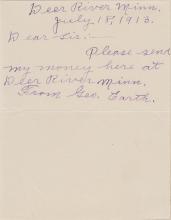 Deer River Minn.
July 18, 1913.
Dear Sir:—
Please send
my money here at
Deer River Minn.
From Geo. Earth.